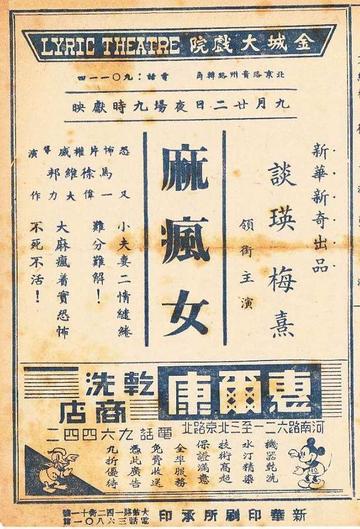 LYRIC THEATRE 金城大戲院
北京路貴州路轉角 電話：九〇一一四
九月廿二日夜場九時獻映
新華新奇出品
談瑛梅熹
領銜主演
麻瘋女
恐怖片權威導演
馬徐維邦
又一偉大力作
小夫妻二情繾綣
難分難解！
大麻瘋着實恐怖
不死不活！
惠爾康
乾洗商店
河南路六二一至三北京路北
電話九六四四二
機器乾洗
水汀精染
技術高超
保證滿意
服務
免費收送
憑此廣告
九折優待
新華印刷所承印